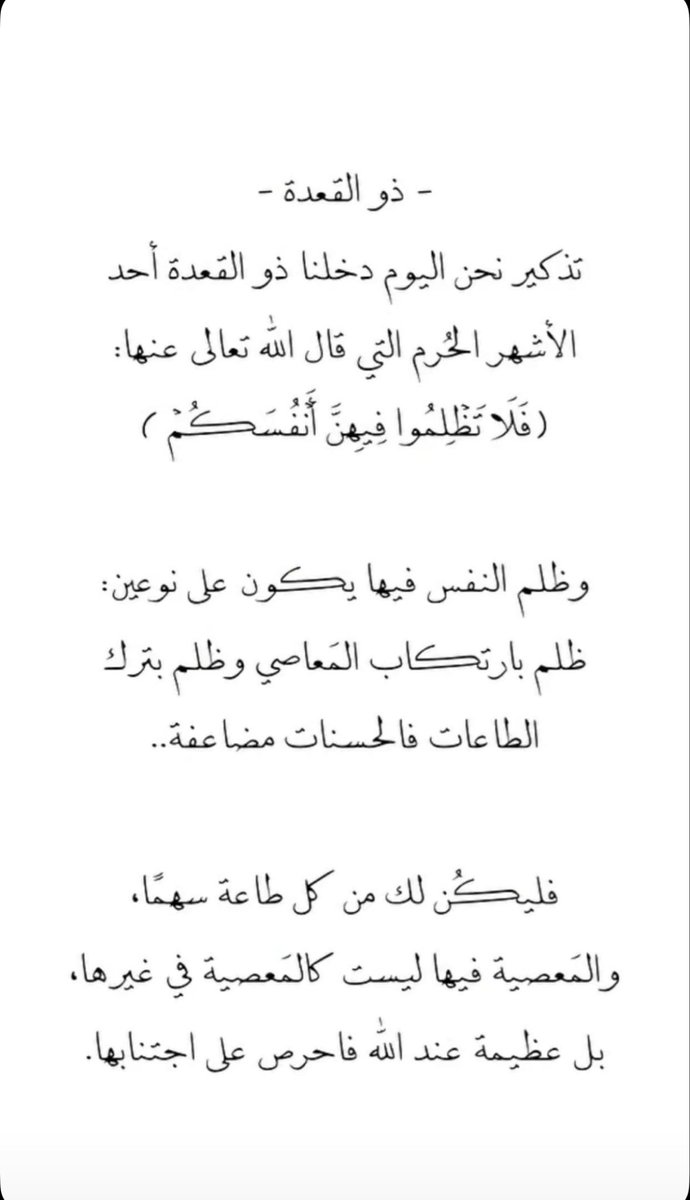 - ذو القعدة -
تذكير نحن اليوم دخلنا ذو القعدة أحد
الأشهر الحُرم التي قال الله تعالى عنها:
(فَلَا تَظْلِمُوا فِيهِنَّ أَنفُسَكُمْ )
وظلم النفس فيها يكون على نوعين:
ظلم بارتكاب المَعاصي وظلم بترك
الطاعات فالحسنات مضاعفة..
فليكُن لك من كل طاعة سهمًا،
والمَعصية فيها ليست كالمَعصية في غيرها،
بل عظيمة عند الله فاحرص على اجتنابها.